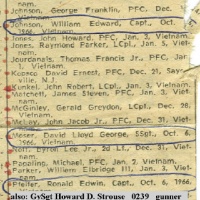 nam.
Johnson, George Franklin, PFC, Dec.
Vietnam.
Johnson, William Edward, Capt., Oct.
6, 1966, Vietnam.
Jones, John Howard, PFC, Jan. 3, Vietnam.
Jones, Raymond Parker, LCpl., Jan. 5, Vietnam.
Jourdanais, Thomas Francis Jr., PFC, Jan.
1, Vietnam.
David Ernest, PFC, Dec. 21,
ville, N.J.
Kunkel, John Robert, LCpl., Jan. 3, Vietnam.
Matchett, James Steven, PFC, Jan. 3, Vietnam.
McGinley, Gerald Greydon, LCpl., Dec. 28,
Vietnam.
McLoy, John Jacob Jr., PFC, Dec. 31, Viet-
Meser, David Lloyd George, SSgt., Oct. 6,
1966, Vietnam.
Byron Lee Jr., 2d Lt., Dec. 31, Vietnam.
Papalino, Michael, PFC, Jan. 2, Vietnam.
Parker, William Elbridge III, Jan. 3, Vietnam.
Pfeifer, Ronald Edwin, Capt., Oct. 6, 1966,
also: GySgt Howard D. Strouse 0239 gunner